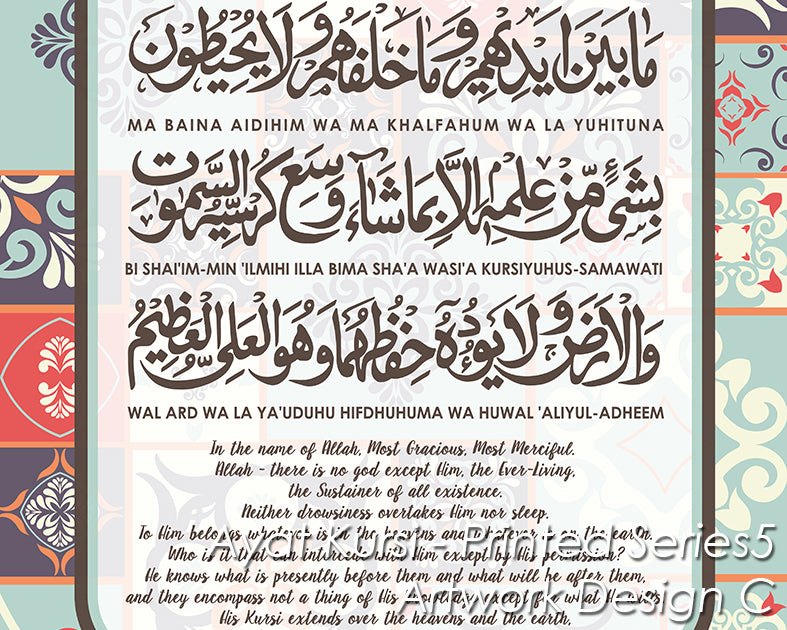 مَا بَيْنَ اَيْدِيْهِمْ وَمَا خَلْفَهُمْ وَلَا يُحِيْطُوْنَ
MA BAINA AIDIHIM WA MA KHALFAHUM WA LA YUHITUNA
بِشَيْءٍ مِّنْ عِلْمِهٖ اِلَّا بِمَا شَاءَ وَسِعَ كُرْسِيُّهُ السَّمٰوٰتِ
BI SHAI'IM-MIN 'ILMIHI ILLA BIMA SHA'A WASI'A KURSIYUHUS-SAMAWATI
وَالْاَرْضَ وَلَا يَئُوْدُهٗ حِفْظُهُمَا وَهُوَ الْعَلِيُّ الْعَظِيْمُ
WAL ARD WA LA YA'UDUHU HIFDHUHUMA WA HUWAL 'ALIYUL-ADHEEM
In the name of Allah, Most Gracious, Most Merciful.
Allah - there is no god except Him, the Ever-Living,
the Sustainer of all existence.
Neither drowsiness overtakes Him nor sleep.
To Him belongs whatever is in the heavens and whatever is on the earth.
Ayat Kursi - Printed Series5
Who is it that can intercede with Him except by His permission?
He knows what is presently before them and what will be after them,
and they encompass not a thing of His knowledge except for what He wills.
Artwork Design C
His Kursi extends over the heavens and the earth,